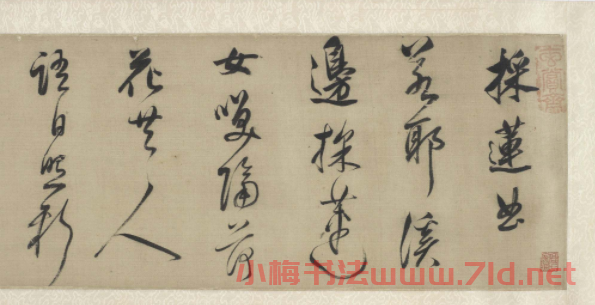 玄賞齋
採蓮曲
若耶溪
邊採蓮
女咲隔荷
花共人
語日照新
小梅书法www.7ld.net